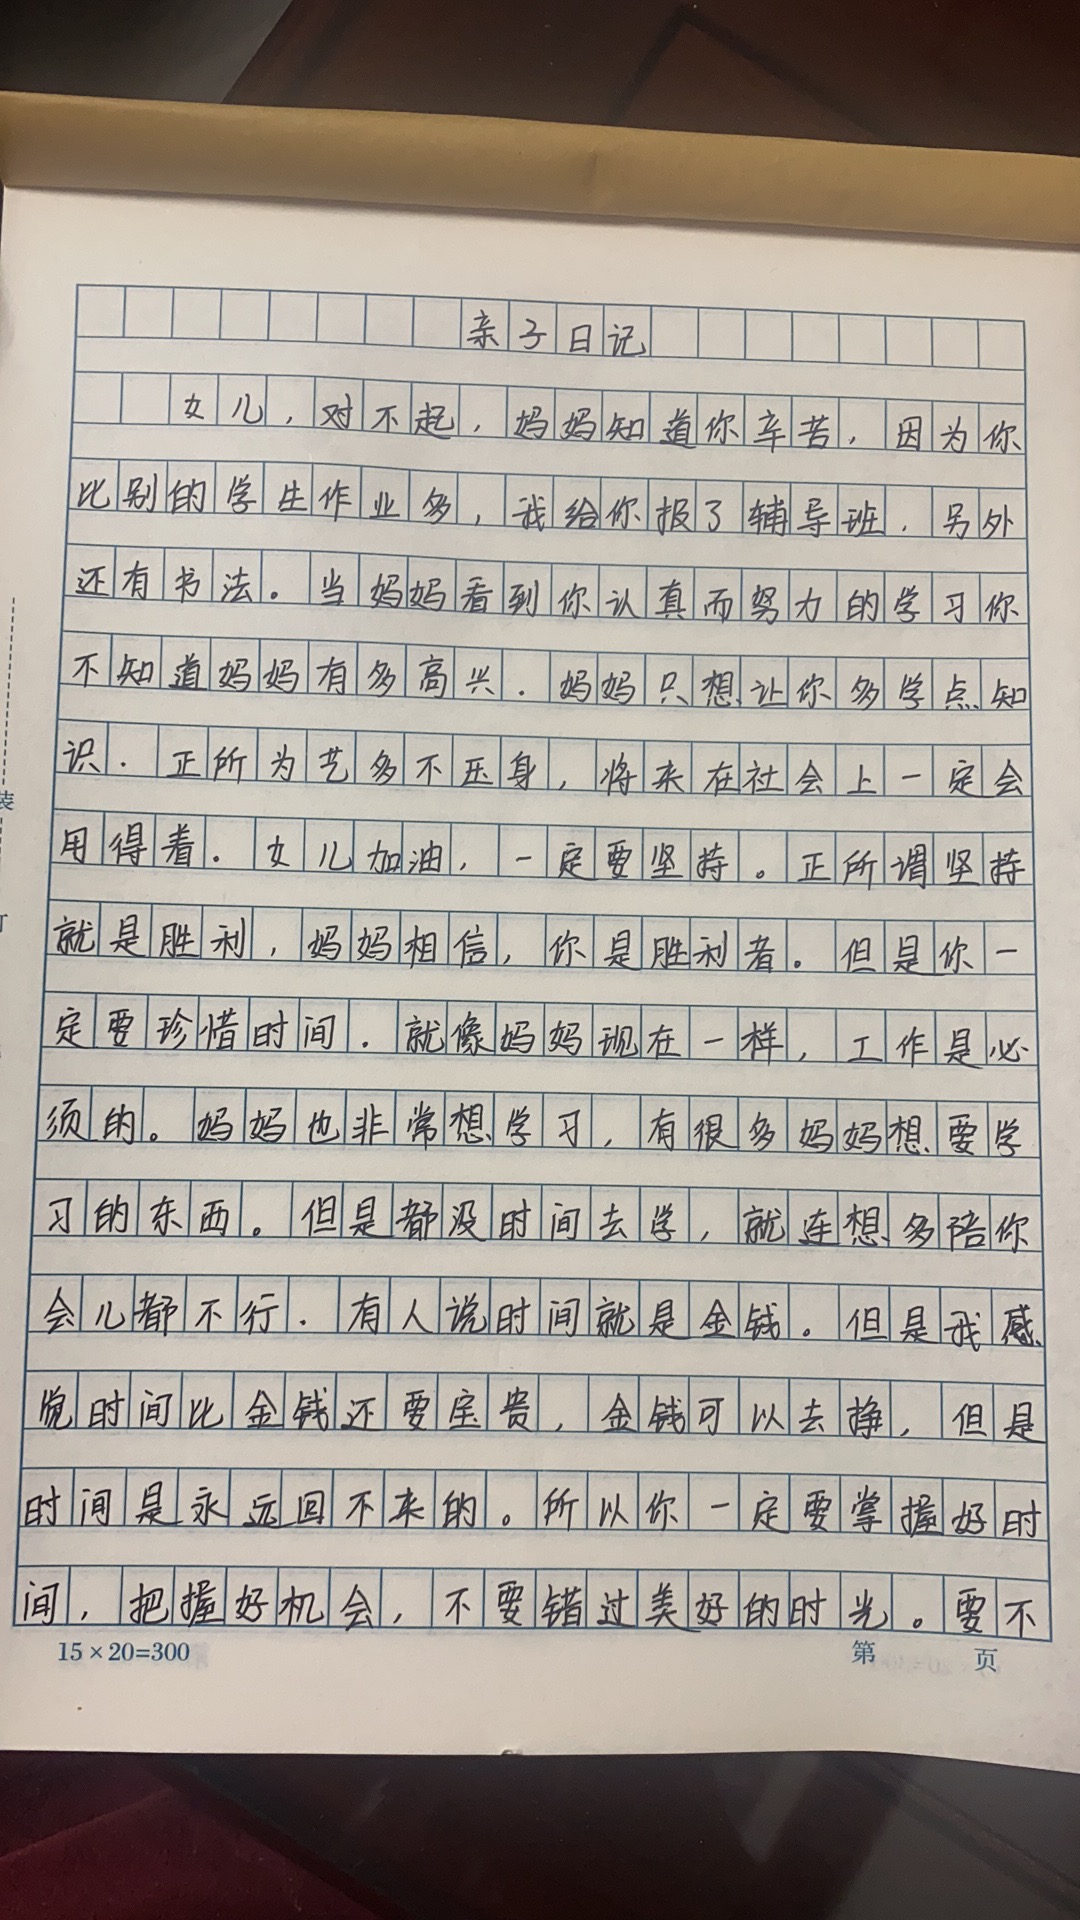 亲子日记
女儿，对不起，妈妈知道你辛苦，因为你
比别的学生作业多，我给你报了辅导班．另外
还有书法。当妈妈看到你认真而努力的学习你
不知道妈妈有多高兴．妈妈只想让你多学点知
识．正所为艺多不压身，将来在社会上一定会
用得着。女儿加油，一定要坚持。正所谓坚持
就是胜利，妈妈相信，你是胜利者。但是你一
定要珍惜时间．就像妈妈现在一样，工作是必
须的。妈妈也非常想学习，有很多妈妈想要学
习的东西。但是都没时间去学，就连想多陪你
会儿都不行．有人说时间就是金钱。但是我感
觉时间比金钱还要宝贵，金钱可以去挣，但是
时间是永远回不来的。所以你一定要掌握好时
间，把握好机会，不要错过美好的时光。要不
15×20=300 第 页
装
订